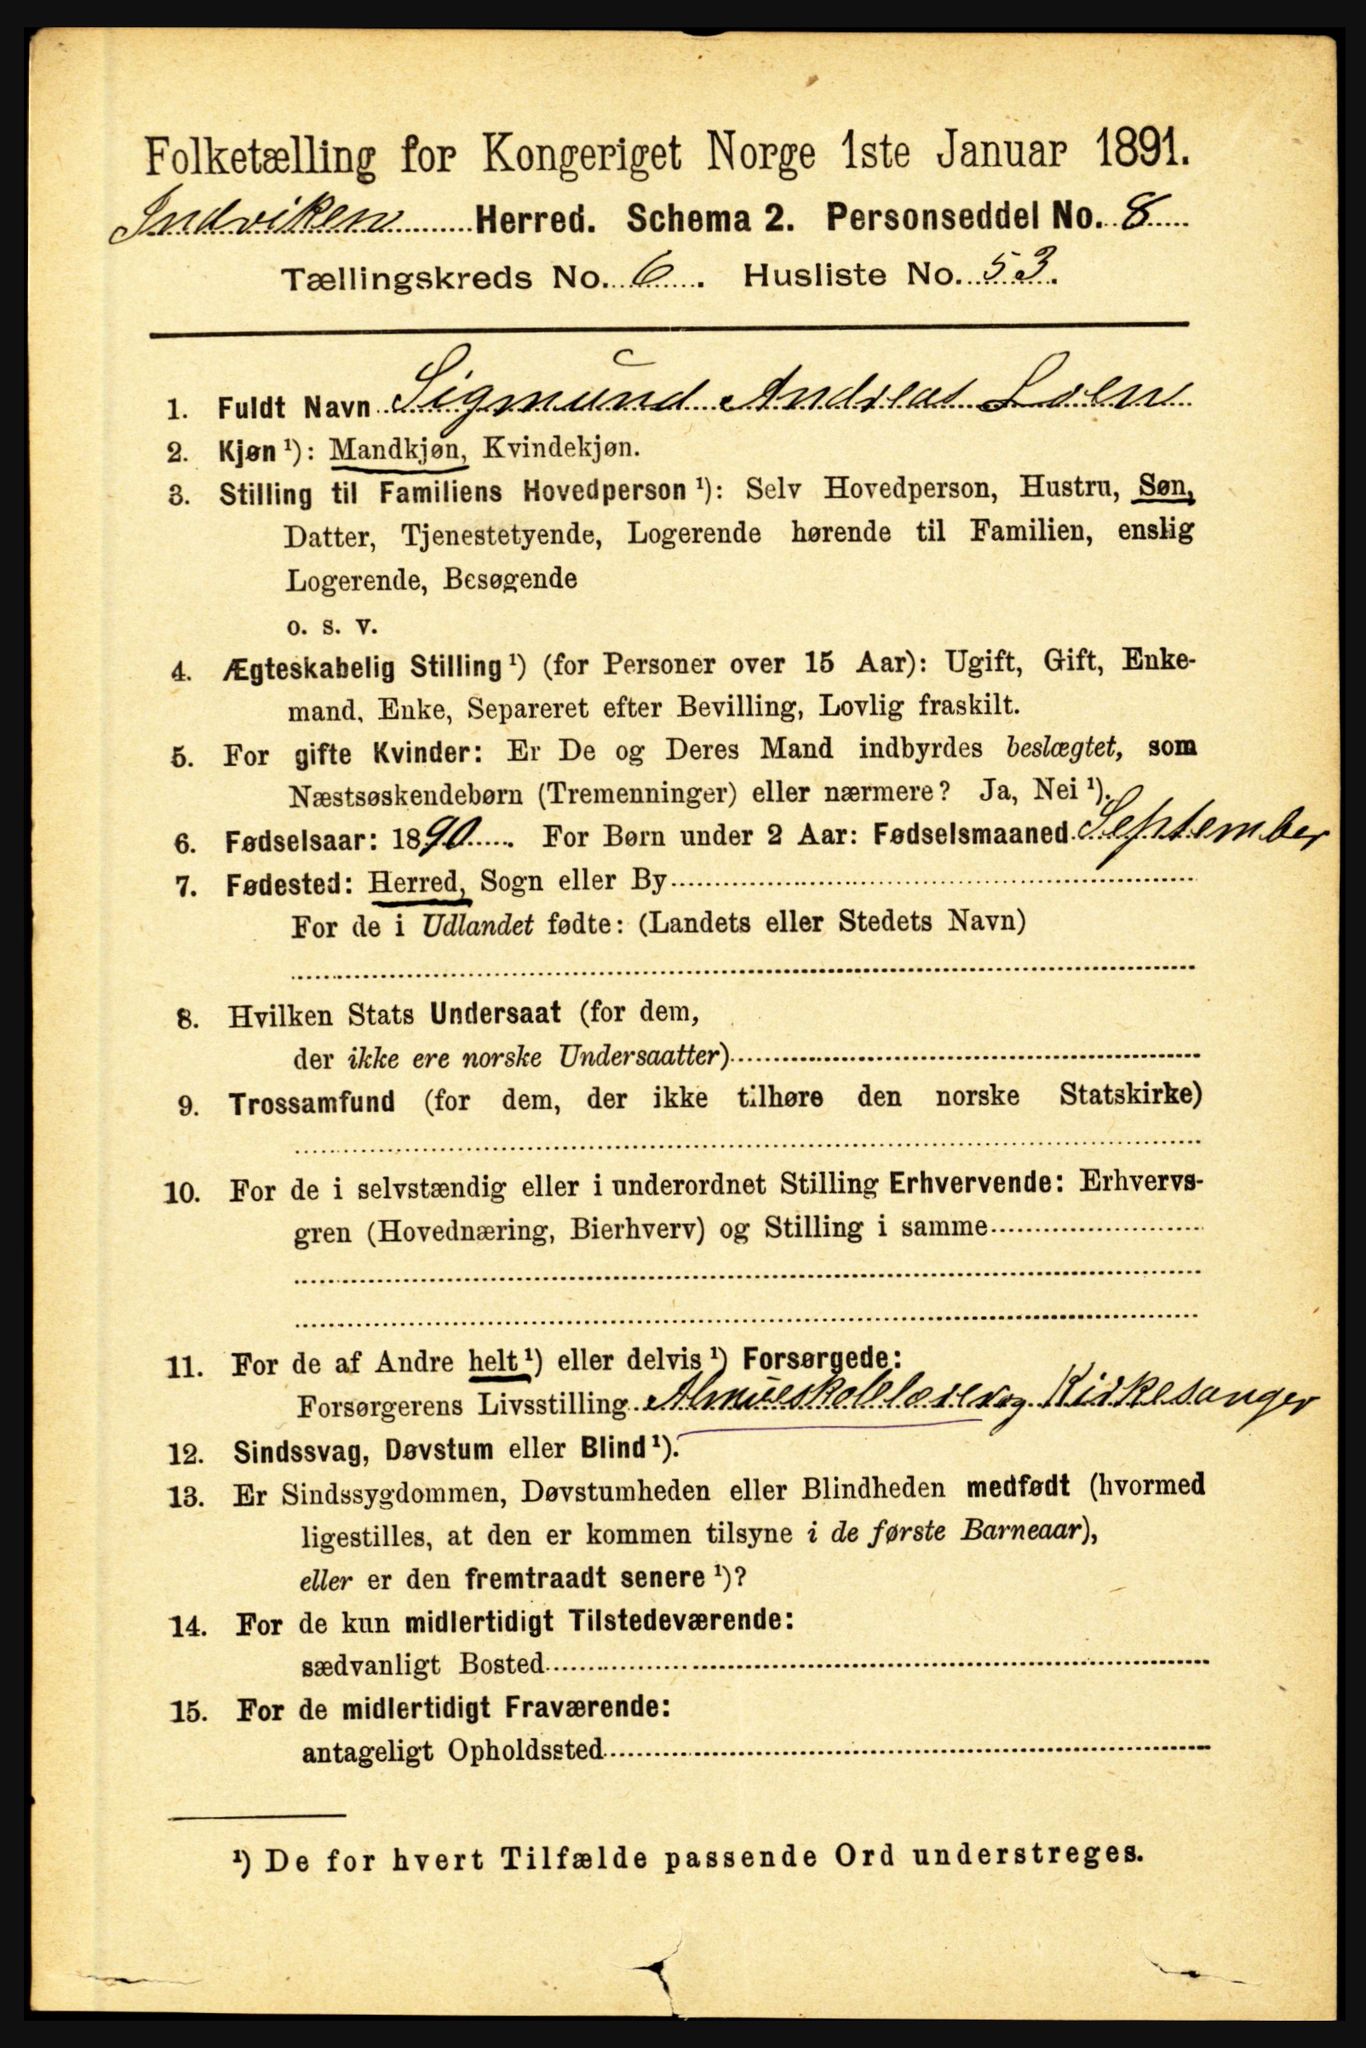 Folketælling for Kongeriget Norge 1ste Januar 1891.
Indviken Herred. Schema 2. Personseddel No. 8
Tællingskreds No. 6. Husliste No. 53.
1. Fuldt Navn Sigmund Andreas Loen
2. Kjøn ¹): Mandkjøn, Kvindekjøn.
3. Stilling til Familiens Hovedperson ¹): Selv Hovedperson, Hustru, Søn,
Datter, Tjenestetyende, Logerende hørende til Familien, enslig
Logerende, Besøgende
o. s. v.
4. Ægteskabelig Stilling ¹) (for Personer over 15 Aar): Ugift, Gift, Enke-
mand, Enke, Separeret efter Bevilling, Lovlig fraskilt.
5. For gifte Kvinder: Er De og Deres Mand indbyrdes beslægtet, som
Næstsøskendebørn (Tremenninger) eller nærmere? Ja, Nei ¹).
6. Fødselsaar: 1890. For Børn under 2 Aar: Fødselsmaaned September
7. Fødested: Herred, Sogn eller By
For de i Udlandet fødte: (Landets eller Stedets Navn)
8. Hvilken Stats Undersaat (for dem,
der ikke ere norske Undersaatter)
9. Trossamfund (for dem, der ikke tilhøre den norske Statskirke)
10. For de i selvstændig eller i underordnet Stilling Erhvervende: Erhvervs-
gren (Hovednæring, Bierhverv) og Stilling i samme
11. For de af Andre helt ¹) eller delvis ¹) Forsørgede:
Forsørgerens Livsstilling Almueskolelærer og Kirkesanger
12. Sindssvag, Døvstum eller Blind ¹).
13. Er Sindssygdommen, Døvstumheden eller Blindheden medfødt (hvormed
ligestilles, at den er kommen tilsyne i de første Barneaar),
eller er den fremtraadt senere ¹)?
14. For de kun midlertidigt Tilstedeværende:
sædvanligt Bosted
15. For de midlertidigt Fraværende:
antageligt Opholdssted
¹) De for hvert Tilfælde passende Ord understreges.